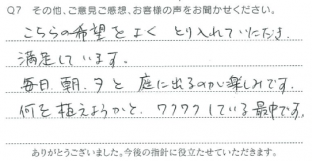 Q7 その他、ご意見ご感想、お客様の声をお聞かせください。
こちらの希望をよく とり入れていただき
満足しています。
毎日、朝、夕と 庭に出るのが楽しみです。
何を植えようかと、ワクワクしている最中です。
ありがとうございました。今後の指針に役立たせていただきます。